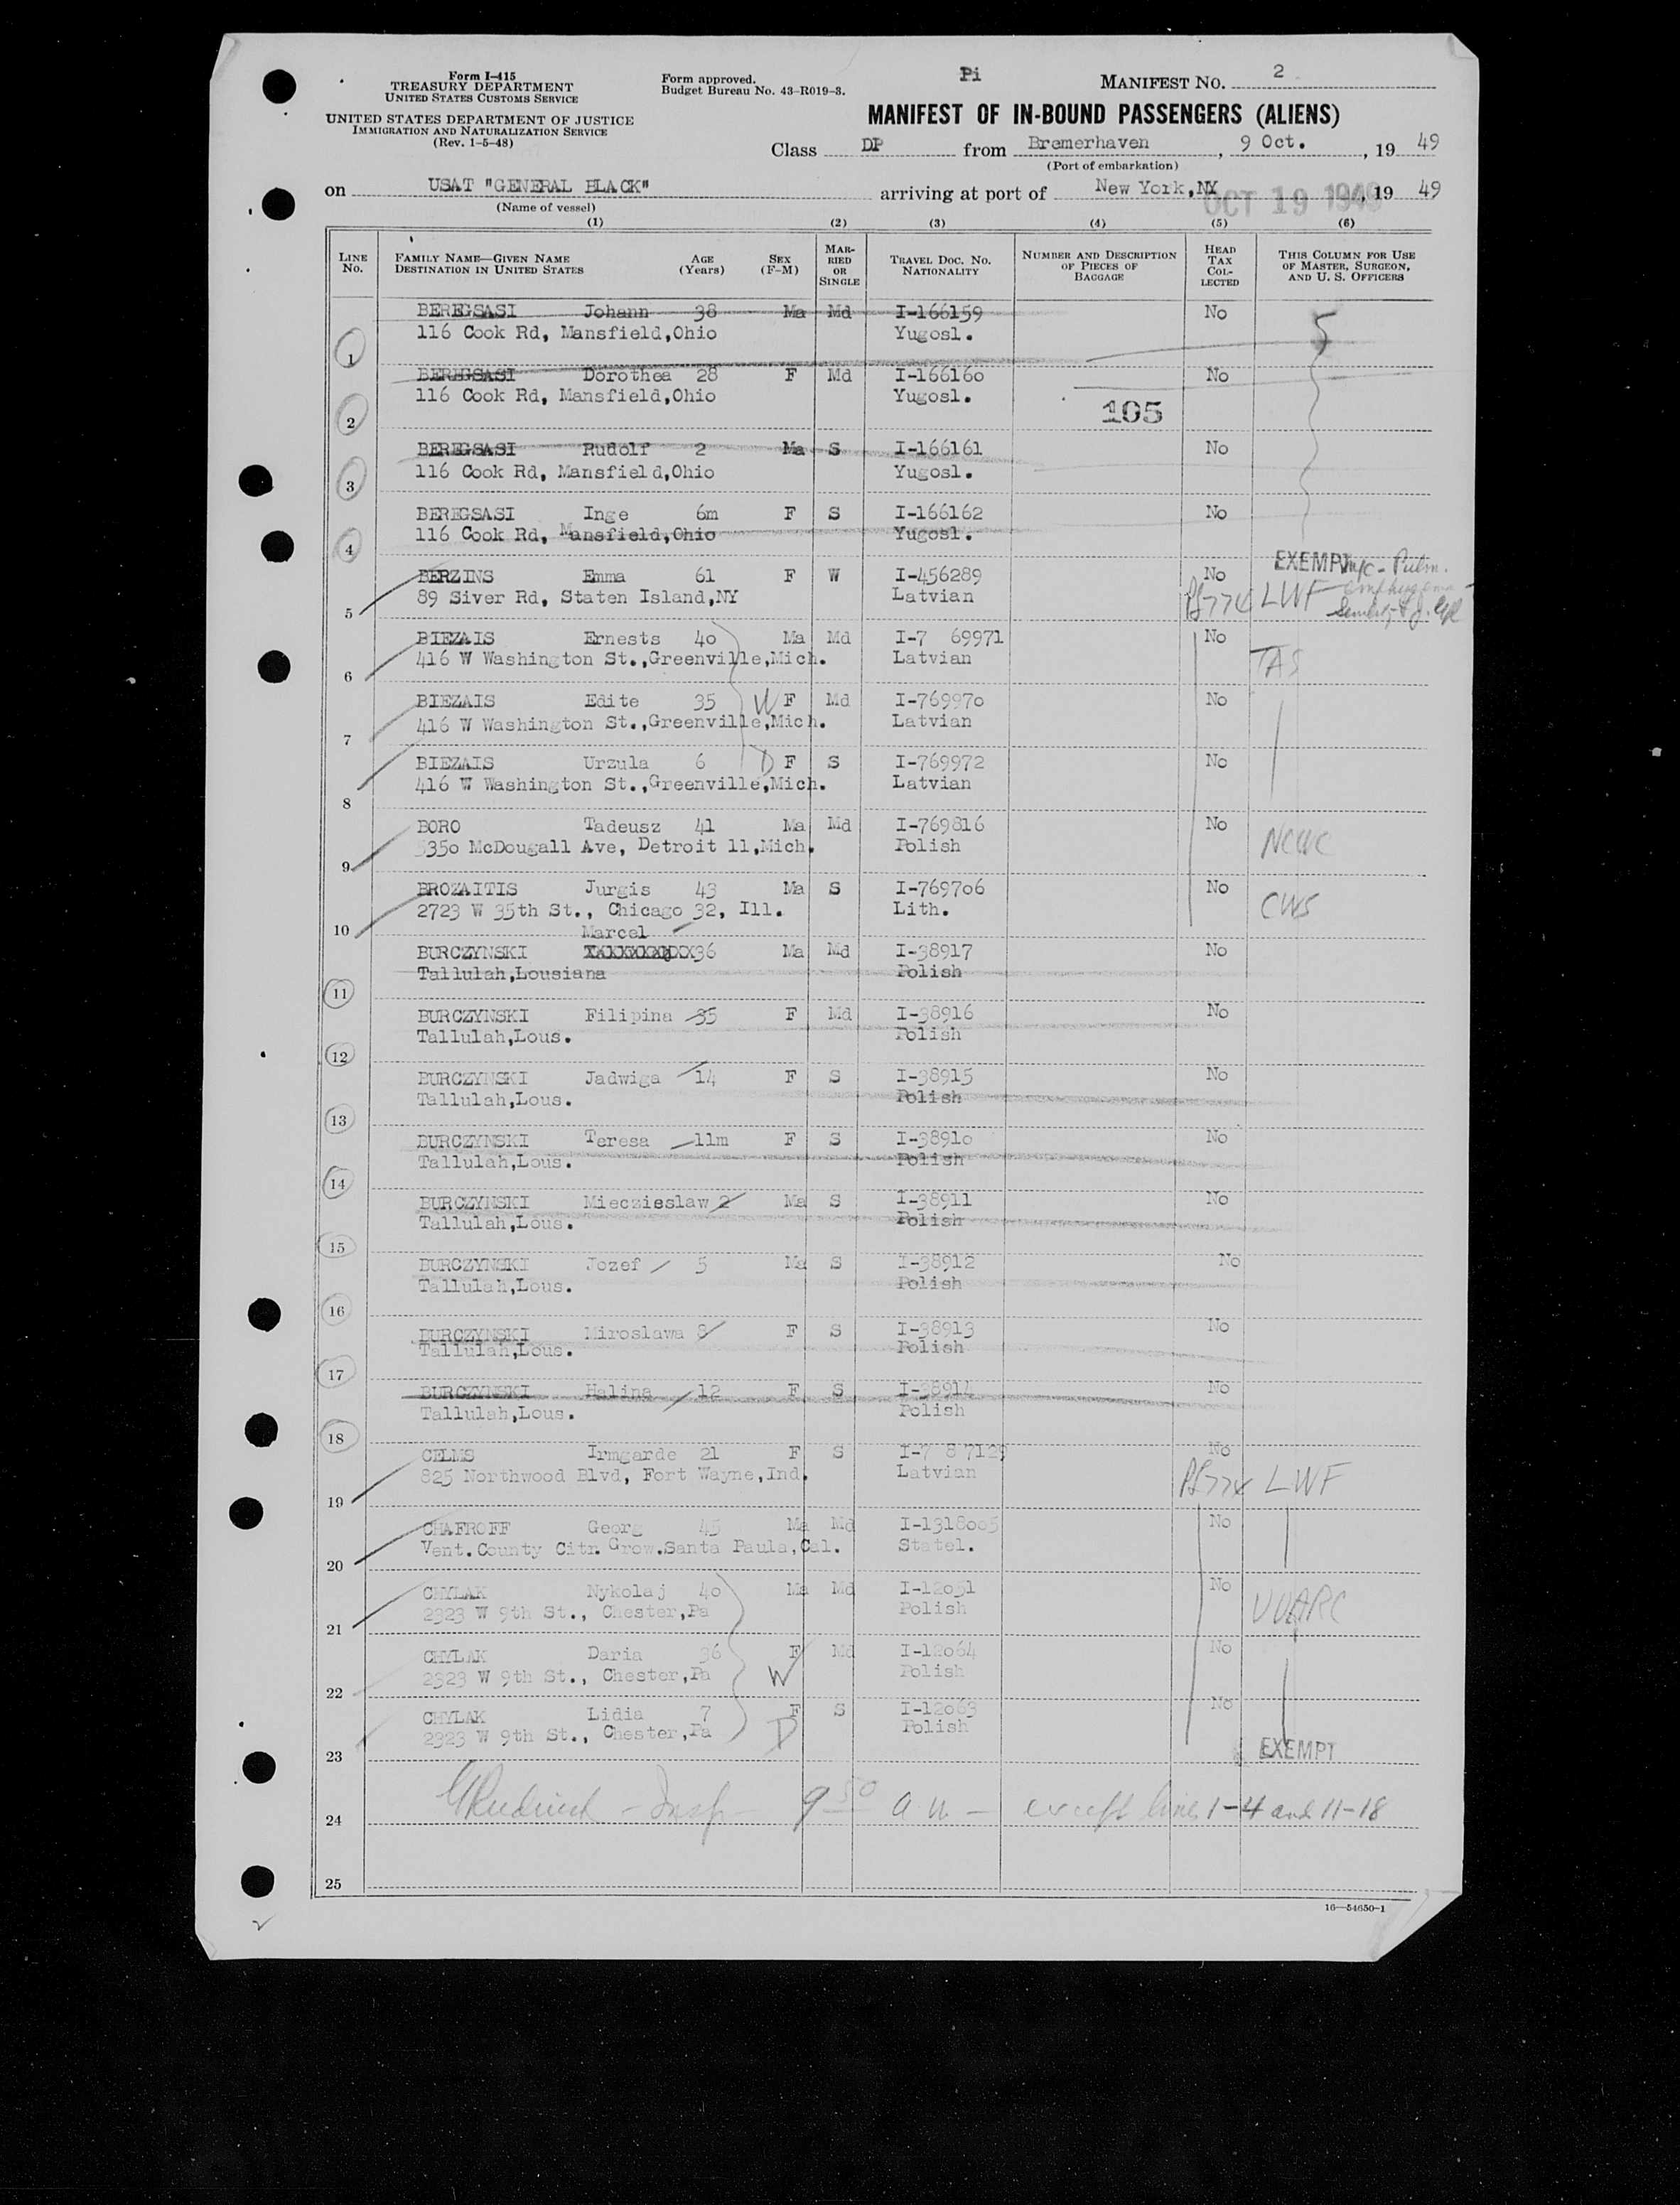 Form I-415
TREASURY DEPARTMENT
UNITED STATES CUSTOMS SERVICE
UNITED STATES DEPARTMENT OF JUSTICE
IMMIGRATION AND NATURALIZATION SERVICE
(Rev. 1-5-48)
Form approved.
Budget Bureau No. 43-R019-3.
Pi
MANIFEST NO. 2
MANIFEST OF IN-BOUND PASSENGERS (ALIENS)
Class DP from Bremerhaven, 9 Oct., 19 49
(Port of embarkation)
on USAT "GENERAL BLACK" arriving at port of New York, NY, 19 49
OCT 19 1949
(Name of vessel)
(1) (2) (3) (4) (5) (6)
LINE NO. FAMILY NAME—GIVEN NAME DESTINATION IN UNITED STATES AGE (Years) SEX (F-M) MARRIED OR SINGLE TRAVEL DOC. NO. NATIONALITY NUMBER AND DESCRIPTION OF PIECES OF BAGGAGE HEAD TAX COLLECTED THIS COLUMN FOR USE OF MASTER, SURGEON, AND U. S. OFFICERS
BEREGSASI Johann 38 Ma Md I-166159 No
116 Cook Rd, Mansfield,Ohio Yugosl.
1
BEREGSASI Dorothea 28 F Md I-166160 No
116 Cook Rd, Mansfield,Ohio Yugosl.
105
2
BEREGSASI Rudolf 2 Ma S I-166161 No
116 Cook Rd, Mansfield,Ohio Yugosl.
3
BEREGSASI Inge 6m F S I-166162 No
116 Cook Rd, Mansfield,Ohio Yugosl.
4
EXEMPT
BERZINS Emma 61 F W I-456289 No
89 Siver Rd, Staten Island,NY Latvian LWF
5
BIEZAIS Ernests 40 Ma Md I-7 69971 No
416 W Washington St.,Greenville,Mich. Latvian TAS
6
BIEZAIS Edite 35 W F Md I-769970 No
416 W Washington St.,Greenville,Mich. Latvian
7
BIEZAIS Urzula 6 D F S I-769972 No
416 W Washington St.,Greenville,Mich. Latvian
8
BORO Tadeusz 41 Ma Md I-769816 No
5350 McDougall Ave, Detroit 11,Mich. Polish NCWC
9
BROZAITIS Jurgis 43 Ma S I-769706 No
2723 W 35th St., Chicago 32, Ill. Lith. CWS
10
Marcel
BURCZYNSKI 36 Ma Md I-38917 No
Tallulah,Lousiana Polish
11
BURCZYNSKI Filipina 35 F Md I-38916 No
Tallulah,Lous. Polish
12
BURCZYNSKI Jadwiga 14 F S I-38915 No
Tallulah,Lous. Polish
13
BURCZYNSKI Teresa 11m F S I-38910 No
Tallulah,Lous. Polish
14
BURCZYNSKI Mieczieslaw 2 Ma S I-38911 No
Tallulah,Lous. Polish
15
BURCZYNSKI Jozef 5 Ma S I-38912 No
Tallulah,Lous. Polish
16
BURCZYNSKI Miroslawa 8 F S I-38913 No
Tallulah,Lous. Polish
17
BURCZYNSKI Halina 12 F S I-38914 No
Tallulah,Lous. Polish
18
CELMS Irmgarde 21 F S I-7 8 7129 No
825 Northwood Blvd, Fort Wayne,Ind. Latvian LWF
19
CHAFROFF Georg 45 Ma Md I-1318005 No
Vent.County Citr. Grow.Santa Paula,Cal. Statel.
20
CHYLAK Nykolaj 40 Ma Md I-12051 No
2323 W 9th St., Chester,Pa Polish UUARC
21
CHYLAK Daria 36 F Md I-12064 No
2323 W 9th St., Chester,Pa W Polish
22
CHYLAK Lidia 7 F S I-12063 No
2323 W 9th St., Chester,Pa D Polish
23
EXEMPT
24 9 50 a m — except lines 1-4 and 11-18
25
16—54650-1